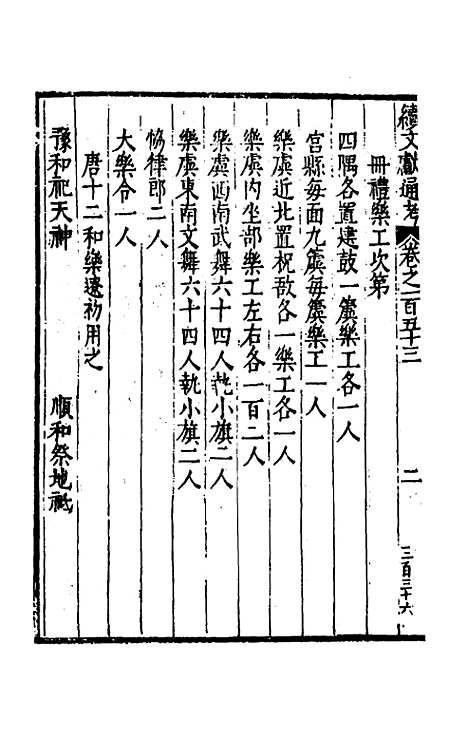 續文獻通考 卷之一百五十三 二 三百三十六
冊禮樂工次第
四隅各置建鼓一簴樂工各一人
宮縣每面九簴每簴樂工一人
樂虡近北置柷敔各一樂工各一人
樂虡內坐部樂工左右各一百二人
樂虡西南武舞六十四人執小旗二人
樂虡東南文舞六十四人執小旗二人
協律郎二人
大樂令一人
唐十二和樂遼初用之
豫和祀天神 順和祭地祇